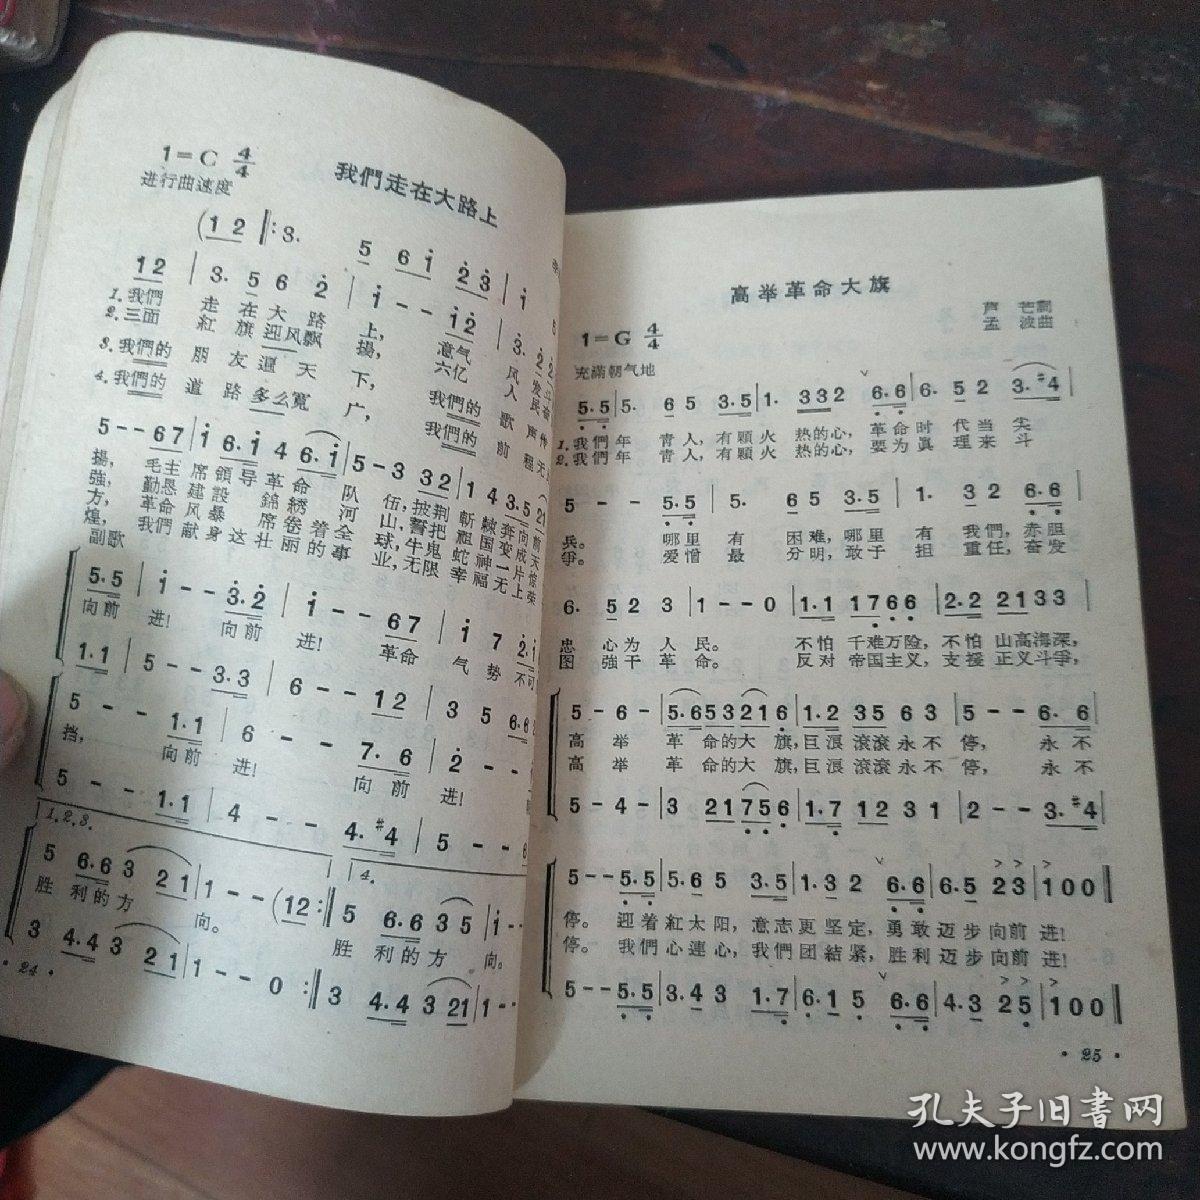 我們走在大路上
1=C 4/4
进行曲速度
(1 2 ‖: 3. 5 6 i 2 3 | i
12 | 3. 5 6 2 | i - - i2 | 3. 2 2
1.我們 走 在 大 路 上, 意气 风 发 斗
2.三面 紅 旗 迎风 飘 揚, 六亿 人 民 奋
3.我們的 朋 友 遍 天 下, 我們的 歌 声 传
4.我們的 道 路 多么 寬 广, 我們的 前 程 无
5 - - 67 | i 6.i 4 6.i | 5 - 3 32 | 1 4 3.5 21
揚, 毛主 席 領导 革命 队 伍, 披荆 斬 棘 奔向 前
強, 勤恳 建設 錦綉 河 山, 誓把 祖 国 变成 天
方, 革命 风暴 席卷 着 全 球, 牛鬼 蛇 神 一片 惊
煌, 我們 献身 这壮 丽的 事 业, 无限 幸 福 无上 荣
副歌
5.5 | i - - 3.2 | i - - 67 | i 7 2.i
向前 进! 向前 进! 革命 气 势 不可
1.1 | 5 - - 3.3 | 6 - - 12 | 3 5 6.6
5 - - 1.1 | 6 - - 7.6 | 2 - -
挡, 向前 进! 向前 进!
5 - - 1.1 | 4 - - 4.#4 | 5 - -
1.2.3. 4.
5 6.6 3 21 | 1 - - (12 :‖ 5 6.6 3 5 | i - -
胜 利的 方 向。 胜 利的 方 向。
3 4.4 3 21 | 1 - - 0 :‖ 3 4.4 3 21 | 1 - -
· 24 ·
高举革命大旗
芦 芒詞
孟 波曲
1=G 4/4
充滿朝气地
5.5 | 5. 6 5 3.5 | 1. 332 6.6 | 6. 5 2 3.#4 |
1.我們 年 青 人, 有顆 火 热的心, 革命 时 代 当 尖
2.我們 年 青 人, 有顆 火 热的心, 要为 真 理 来 斗
5 - - 5.5 | 5. 6 5 3.5 | 1. 3 2 6.6 |
兵。 哪里 有 困难, 哪里 有 我們, 赤胆
爭。 爱憎 最 分明, 敢于 担 重任, 奋发
6. 5 2 3 | 1 - - 0 | 1.1 1766 | 2.2 2133 |
忠 心为 人 民。 不怕 千难万险, 不怕 山高海深,
图 強干 革 命。 反对 帝国主义, 支援 正义斗爭,
5 - 6 - | 5.6 53 21 6 | 1.2 35 6 3 | 5 - - 6.6 |
高 举 革 命的大 旗, 巨浪 滚滚 永 不 停, 永 不
高 举 革 命的大 旗, 巨浪 滚滚 永 不 停, 永 不
5 - 4 - | 3 21 75 6 | 1.7 12 3 1 | 2 - - 3.#4 |
5 - - 5.5 | 5.6 5 3.5 | 1.3 2 6.6 | 6.5 23 | 100 ‖
停。 迎着 紅太阳, 意志 更坚定, 勇敢 迈步 向前 进!
停。 我們 心連心, 我們 团結紧, 胜利 迈步 向前 进!
5 - - 5.5 | 3.4 3 1.7 | 6.1 5 6.6 | 4.3 25 | 100 ‖
· 25 ·
孔夫子旧書网
www.kongfz.com